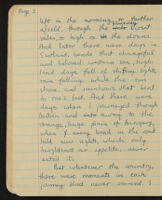 Page 2
left in the morning, or further
afield, through the Dorset
or high on the downs.
And later there were days in
Scotland, beside that changeful
and beloved western sea, high-
land days full of shifting light,
rain falling while the sun
shone, and rainbows that bent
to one's feet. And there were
days when I journeyed through
Britain and away to the
strange, huge plain of Hungary,
when every bend in the road
held new sights, which only
heightened an appetite, never
sated it.
But whatever the country,
there were moments in each
journey that never varied. I